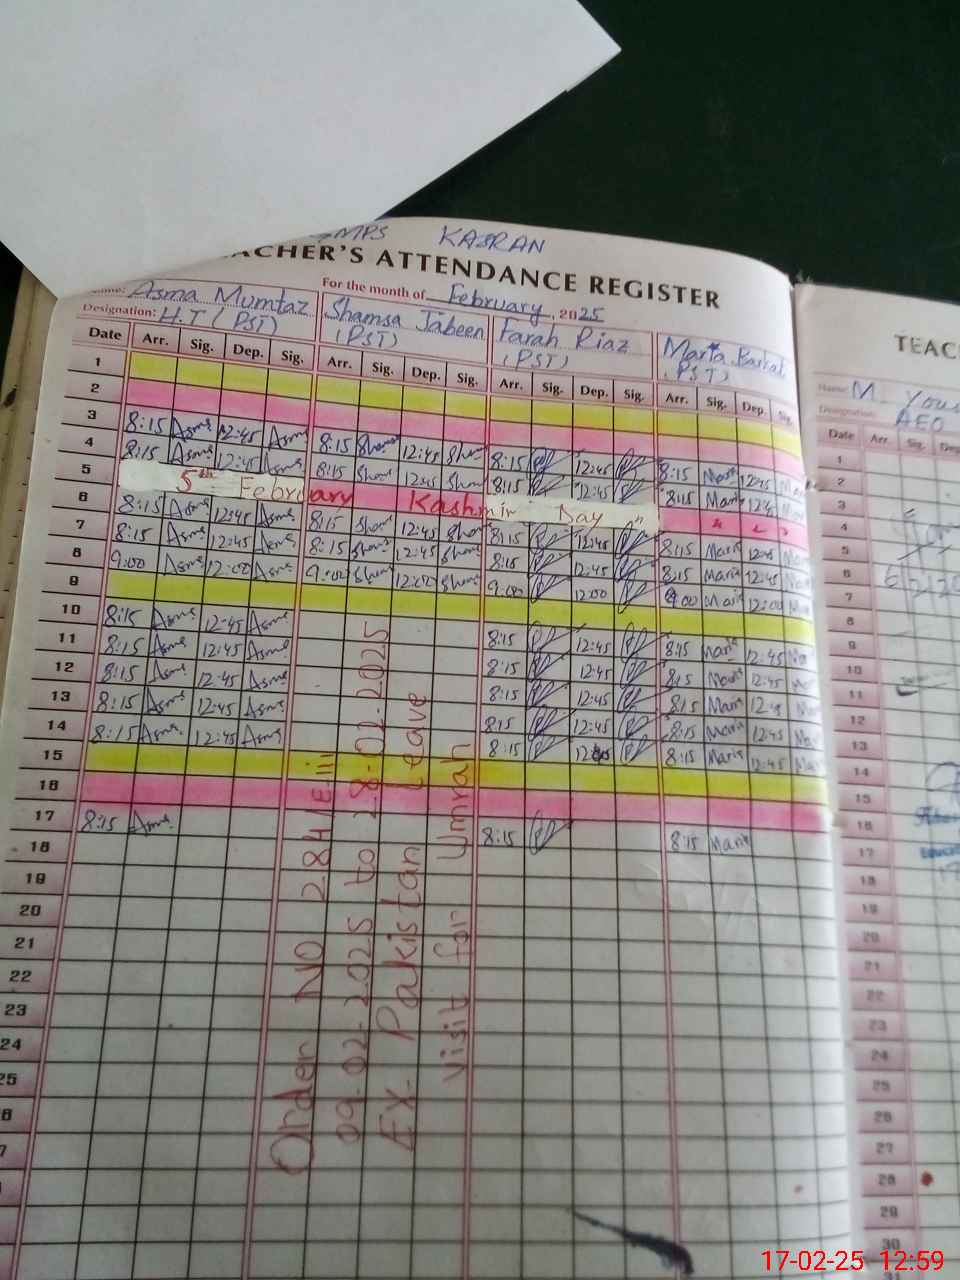 GMPS KASRAN
TEACHER'S ATTENDANCE REGISTER
For the month of February, 2025
Name: Asma Mumtaz Shamsa Jabeen Farah Riaz Maria Barkat
Designation: H.T (PST) (PST) (PST) (PST)
Date Arr. Sig. Dep. Sig. Arr. Sig. Dep. Sig. Arr. Sig. Dep. Sig. Arr. Sig. Dep. Sig.
1
2
3 8:15 Asma 12:45 Asma 8:15 Sham 12:45 Sham 8:15 12:45 8:15 Maria 12:45
4 8:15 Asma 12:45 Asma 8:15 Sham 12:45 Sham 8:15 12:45 8:15 Maria 12:45
5 5th February Kashmir Day
6 8:15 Asma 12:45 Asma 8:15 Sham 12:45 Sham 8:15 12:45 8:15 Maria 12:45
7 8:15 Asma 12:45 Asma 8:15 Sham 12:45 Sham 8:15 12:45 8:15 Maria 12:45
8 9:00 Asma 12:00 Asma 9:00 Sham 12:00 Sham 9:00 12:00 9:00 Maria 12:00
9
10 8:15 Asma 12:45 Asma 8:15 12:45 8:15 Maria 12:45
11 8:15 Asma 12:45 Asma 8:15 12:45 8:15 Maria 12:45
12 8:15 Asma 12:45 Asma 8:15 12:45 8:15 Maria 12:45
13 8:15 Asma 12:45 Asma 8:15 12:45 8:15 Maria 12:45
14 8:15 Asma 12:45 Asma 8:15 8:15 Maria 12:45
15
16
17 8:15 Asma 8:15 8:15 Maria
18
19
20
21
22
23
24
25
Order NO 2841/E-iii
09-02-2025 to 28-02-2025
EX. Pakistan Leave
visit for Umrah
TEAC
Name: M. Yous
Designation: AEO
Date Arr. Sig. Dep
1
2
3
4
5
6
7
8
9
10
11
12
13
14
15
16
17
18
19
20
21
22
23
24
25
26
27
28
29
30
17-02-25 12:59